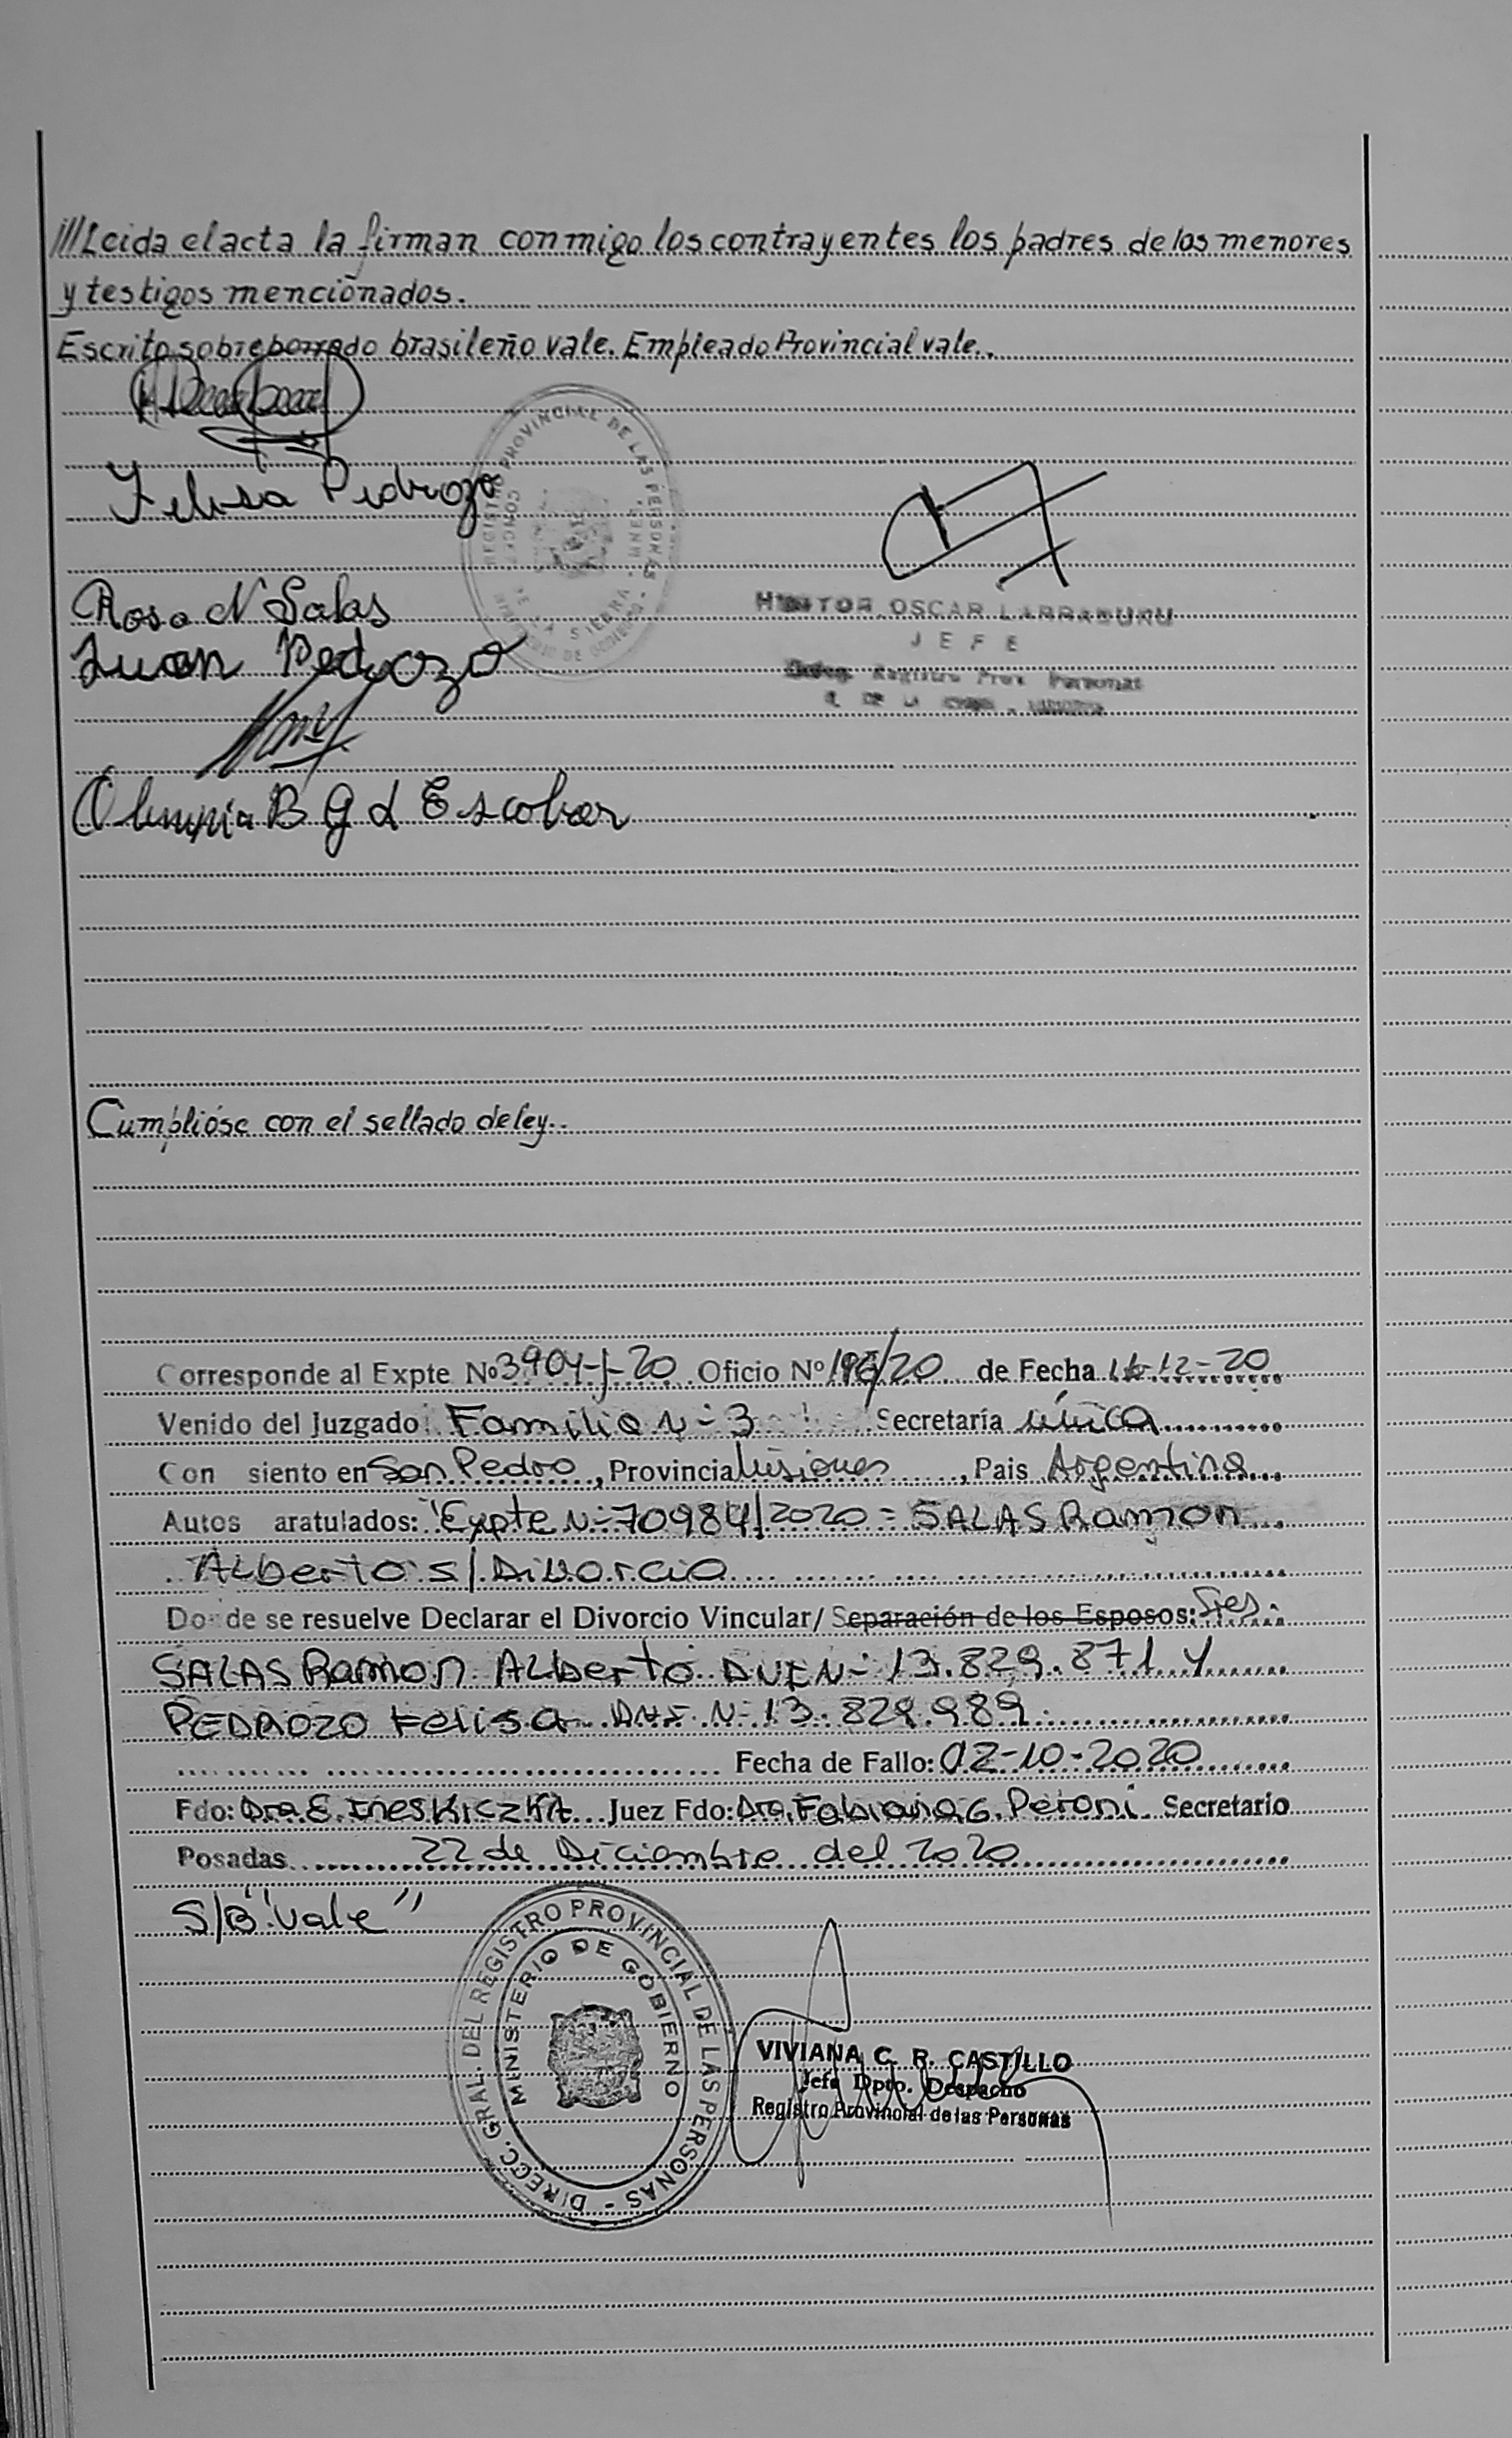 ///Leida el acta la firman conmigo los contrayentes los padres de los menores
y testigos mencionados.
Escrito sobre borrado brasileño vale. Empleado Provincial vale.
Felisa Pedrozo
REGISTRO PROVINCIAL DE LAS PERSONAS
DE LA SIERRA
Rosa N Salas
Juan Pedrozo
OSCAR LARRABURU
JEFE
Deleg. Registro Prov. Personas
Olimpia B G d Escobar
Cumplióse con el sellado de ley..
Corresponde al Expte Nº 3904-J-20 Oficio Nº 196/20 de Fecha 16-12-20
Venido del Juzgado Familia Nº 3 Secretaría única
Con siento en San Pedro, Provincia Misiones, Pais Argentina
Autos aratulados: "Expte Nº 70984/2020 = SALAS Ramon
Alberto S/ Divorcio
Donde se resuelve Declarar el Divorcio Vincular/ Separación de los Esposos: Sres:
SALAS Ramon Alberto DNI Nº 13.829.871 y
PEDROZO Felisa DNI Nº 13.829.989
Fecha de Fallo: 02-10-2020
Fdo: Dra. E. Ines Kiczka Juez Fdo: Dra. Fabiana G. Peroni Secretario
Posadas 22 de Diciembre del 2020
S/B "vale"
DIRECC. GRAL. DEL REGISTRO PROVINCIAL DE LAS PERSONAS -
MINISTERIO DE GOBIERNO
VIVIANA C. R. CASTILLO
Jefa Dpto. Despacho
Registro Provincial de las Personas